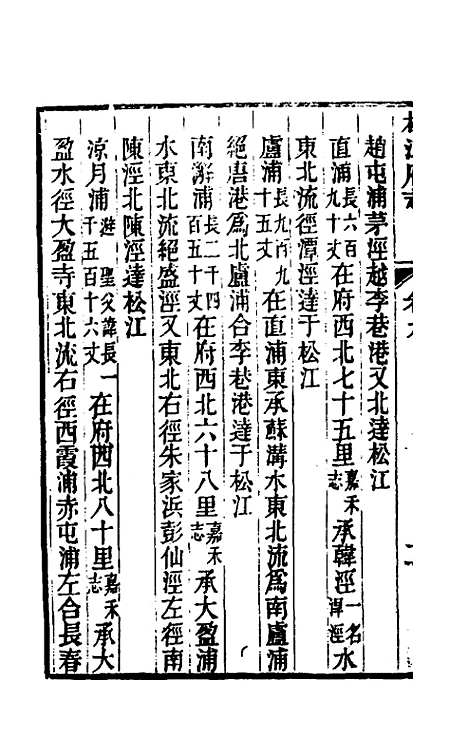 趙屯浦茅涇越李巷港又北達松江
直浦長六百九十丈在府西北七十五里嘉禾志承韓涇一名諢涇水
東北流徑潭涇達于松江
盧浦長九百九十五丈在直浦東承蘇溝水東北流爲南盧浦
絕唐港爲北盧浦合李巷港達于松江
南澥浦長二千四百五十丈在府西北六十八里嘉禾志承大盈浦
水東北流絕盛涇又東北右徑朱家浜彭仙涇左徑南
陳涇北陳涇達松江
涼月浦避聖父諱長一千五百十六丈在府西北八十里嘉禾志承大
盈水徑大盈寺東北流右徑西霞浦赤屯浦左合長春